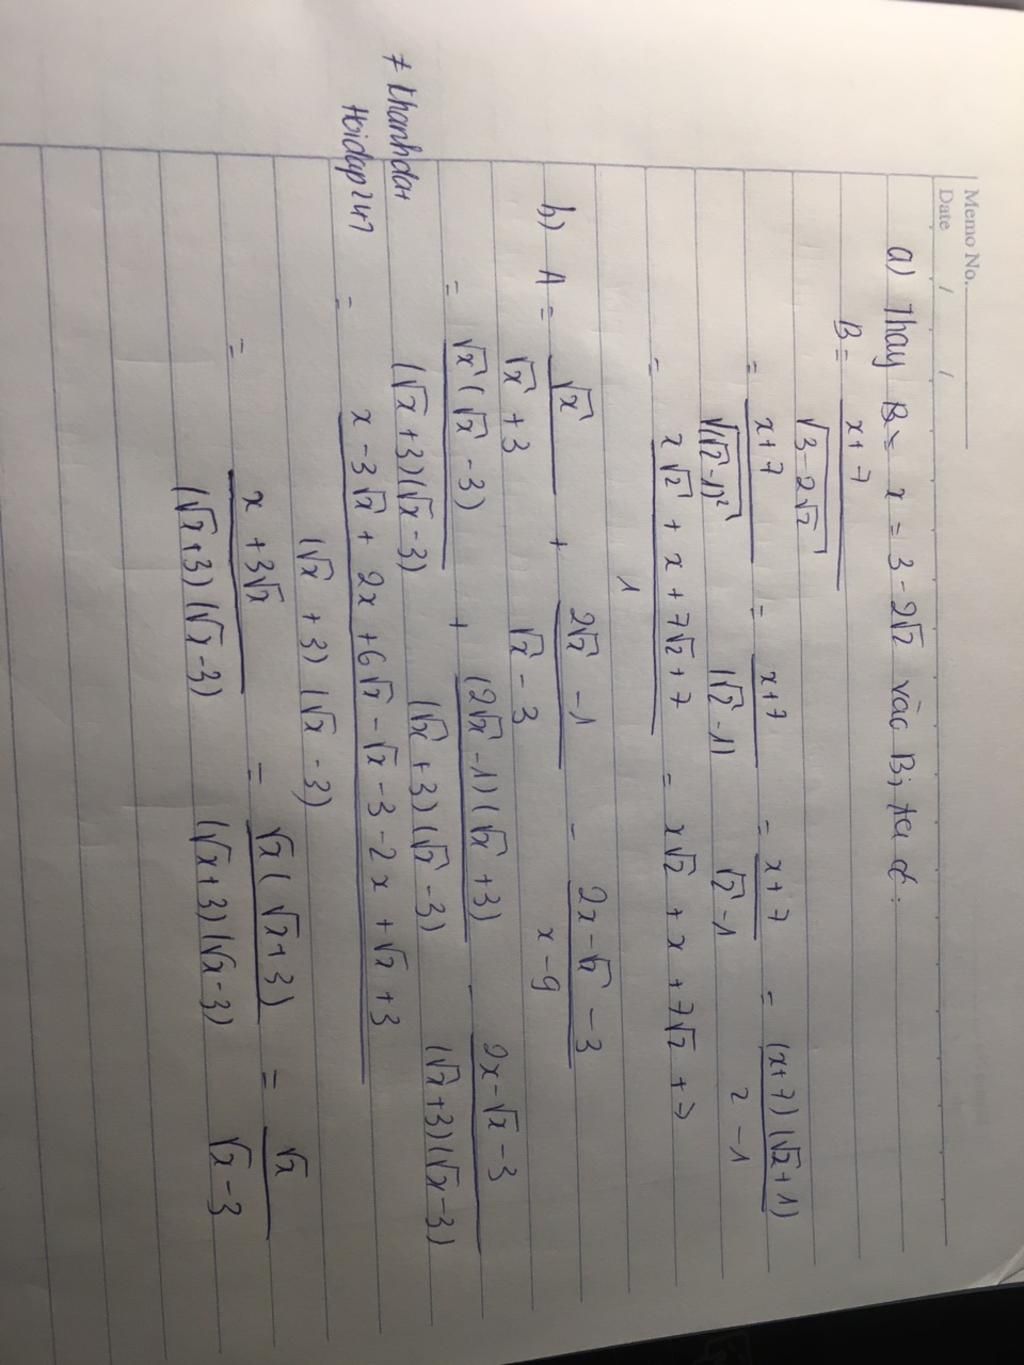 Memo No.
Date / /
a) Thay x = 3 - 2√2 vào B, ta đc:
B = x+7 / √(3-2√2)
= x+7 / √((√2-1)²) = x+7 / (√2-1) = x+7 / √2-1 = (x+7)(√2+1) / 2-1
= x√2 + x + 7√2 + 7 / 1 = x√2 + x + 7√2 + 7
b) A = √x / √x+3 + 2√x-1 / √x-3 - 2x-√x-3 / x-9
= √x(√x-3) / (√x+3)(√x-3) + (2√x-1)(√x+3) / (√x+3)(√x-3) - 2x-√x-3 / (√x+3)(√x-3)
≠ Khanhdat
Hoidap247
= x-3√x + 2x+6√x-√x-3-2x+√x+3 / (√x+3)(√x-3)
= x+3√x / (√x+3)(√x-3) = √x(√x+3) / (√x+3)(√x-3) = √x / √x-3